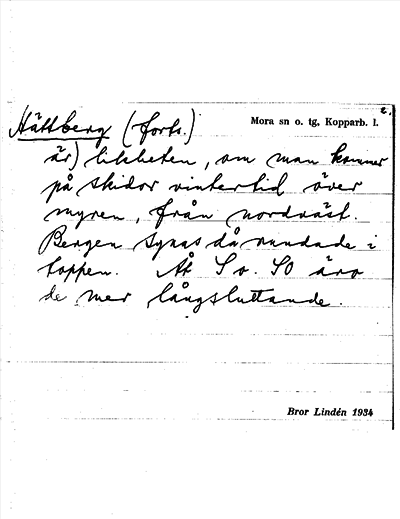 2.
Hättberg (forts.) Mora sn o. tg, Kopparb. l.
är) likheten, om man kommer
på skidor vintertid över
myren, från nordväst.
Bergen synas då rundade i
toppen. Åt S o. SO äro
de mer långsluttande.
Bror Lindén 1934